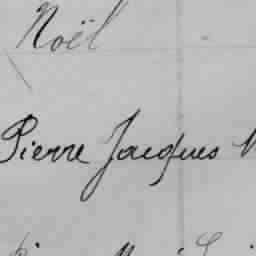 Noël
Pierre Jacques